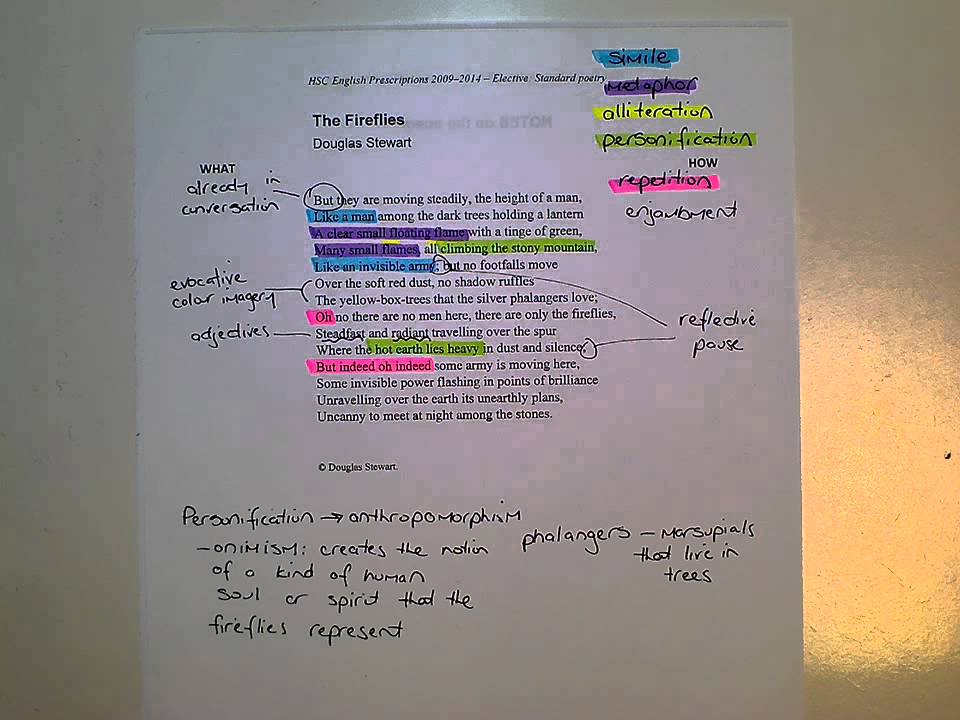 simile
HSC English Prescriptions 2009–2014 – Elective: Standard poetry
metaphor
alliteration
The Fireflies
personification
Douglas Stewart
HOW
WHAT
repetition
already in
conversation
enjambment
But they are moving steadily, the height of a man,
Like a man among the dark trees holding a lantern
A clear small floating flame with a tinge of green,
Many small flames, all climbing the stony mountain,
Like an invisible army; but no footfalls move
evocative
color imagery
Over the soft red dust, no shadow ruffles
The yellow-box-trees that the silver phalangers love;
Oh no there are no men here, there are only the fireflies,
adjectives
Steadfast and radiant travelling over the spur
reflective
pause
Where the hot earth lies heavy in dust and silence;
But indeed oh indeed some army is moving here,
Some invisible power flashing in points of brilliance
Unravelling over the earth its unearthly plans,
Uncanny to meet at night among the stones.
© Douglas Stewart.
Personification → anthropomorphism
- animism: creates the notion
of a kind of human
soul or spirit that the
fireflies represent
phalangers - marsupials
that live in
trees